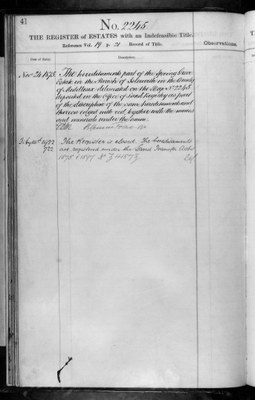 41
No. 2245
THE REGISTER of ESTATES with an Indefeasible Title.
Reference Vol. 14 p. 31 Record of Title.
Observations.
Date of Entry.
Description.
The hereditaments part of the Spring Grove
Estate in the Parish of Isleworth in the County
of Middlesex delineated on the Map No. 2245
deposited in the Office of Land Registry as part
of the description of the same hereditaments and
thereon edged with red, together with the mines
and minerals under the same.
1922
The Register is closed. The hereditaments
are registered under the Land Transfer Acts
1875 & 1897